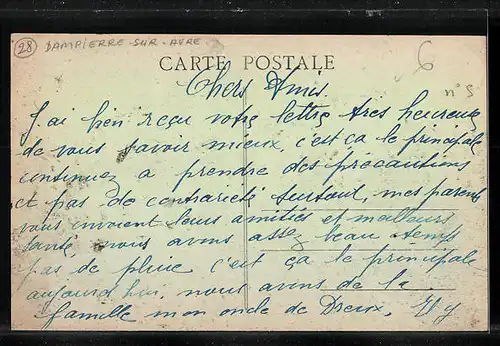 28 DAMPIERRE-SUR-AVRE
6
CARTE POSTALE
Chers Amis.
n° 5
J'ai bien reçu votre lettre très heureux
de vous savoir mieux, c'est ça le principale
continuez a prendre des précautions
et pas de contrariété surtout, mes parents
vous envoient leurs amitiés et meilleurs
santé, nous avons assez beau temps
pas de pluie c'est ça le principale
aujourd'hui, nous avons de la
famille mon oncle de Dreux.